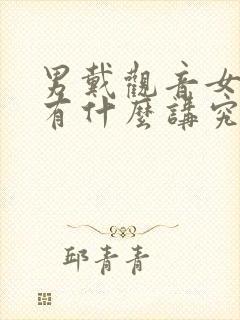 男戴觀音女
有什麼講究
邱青青